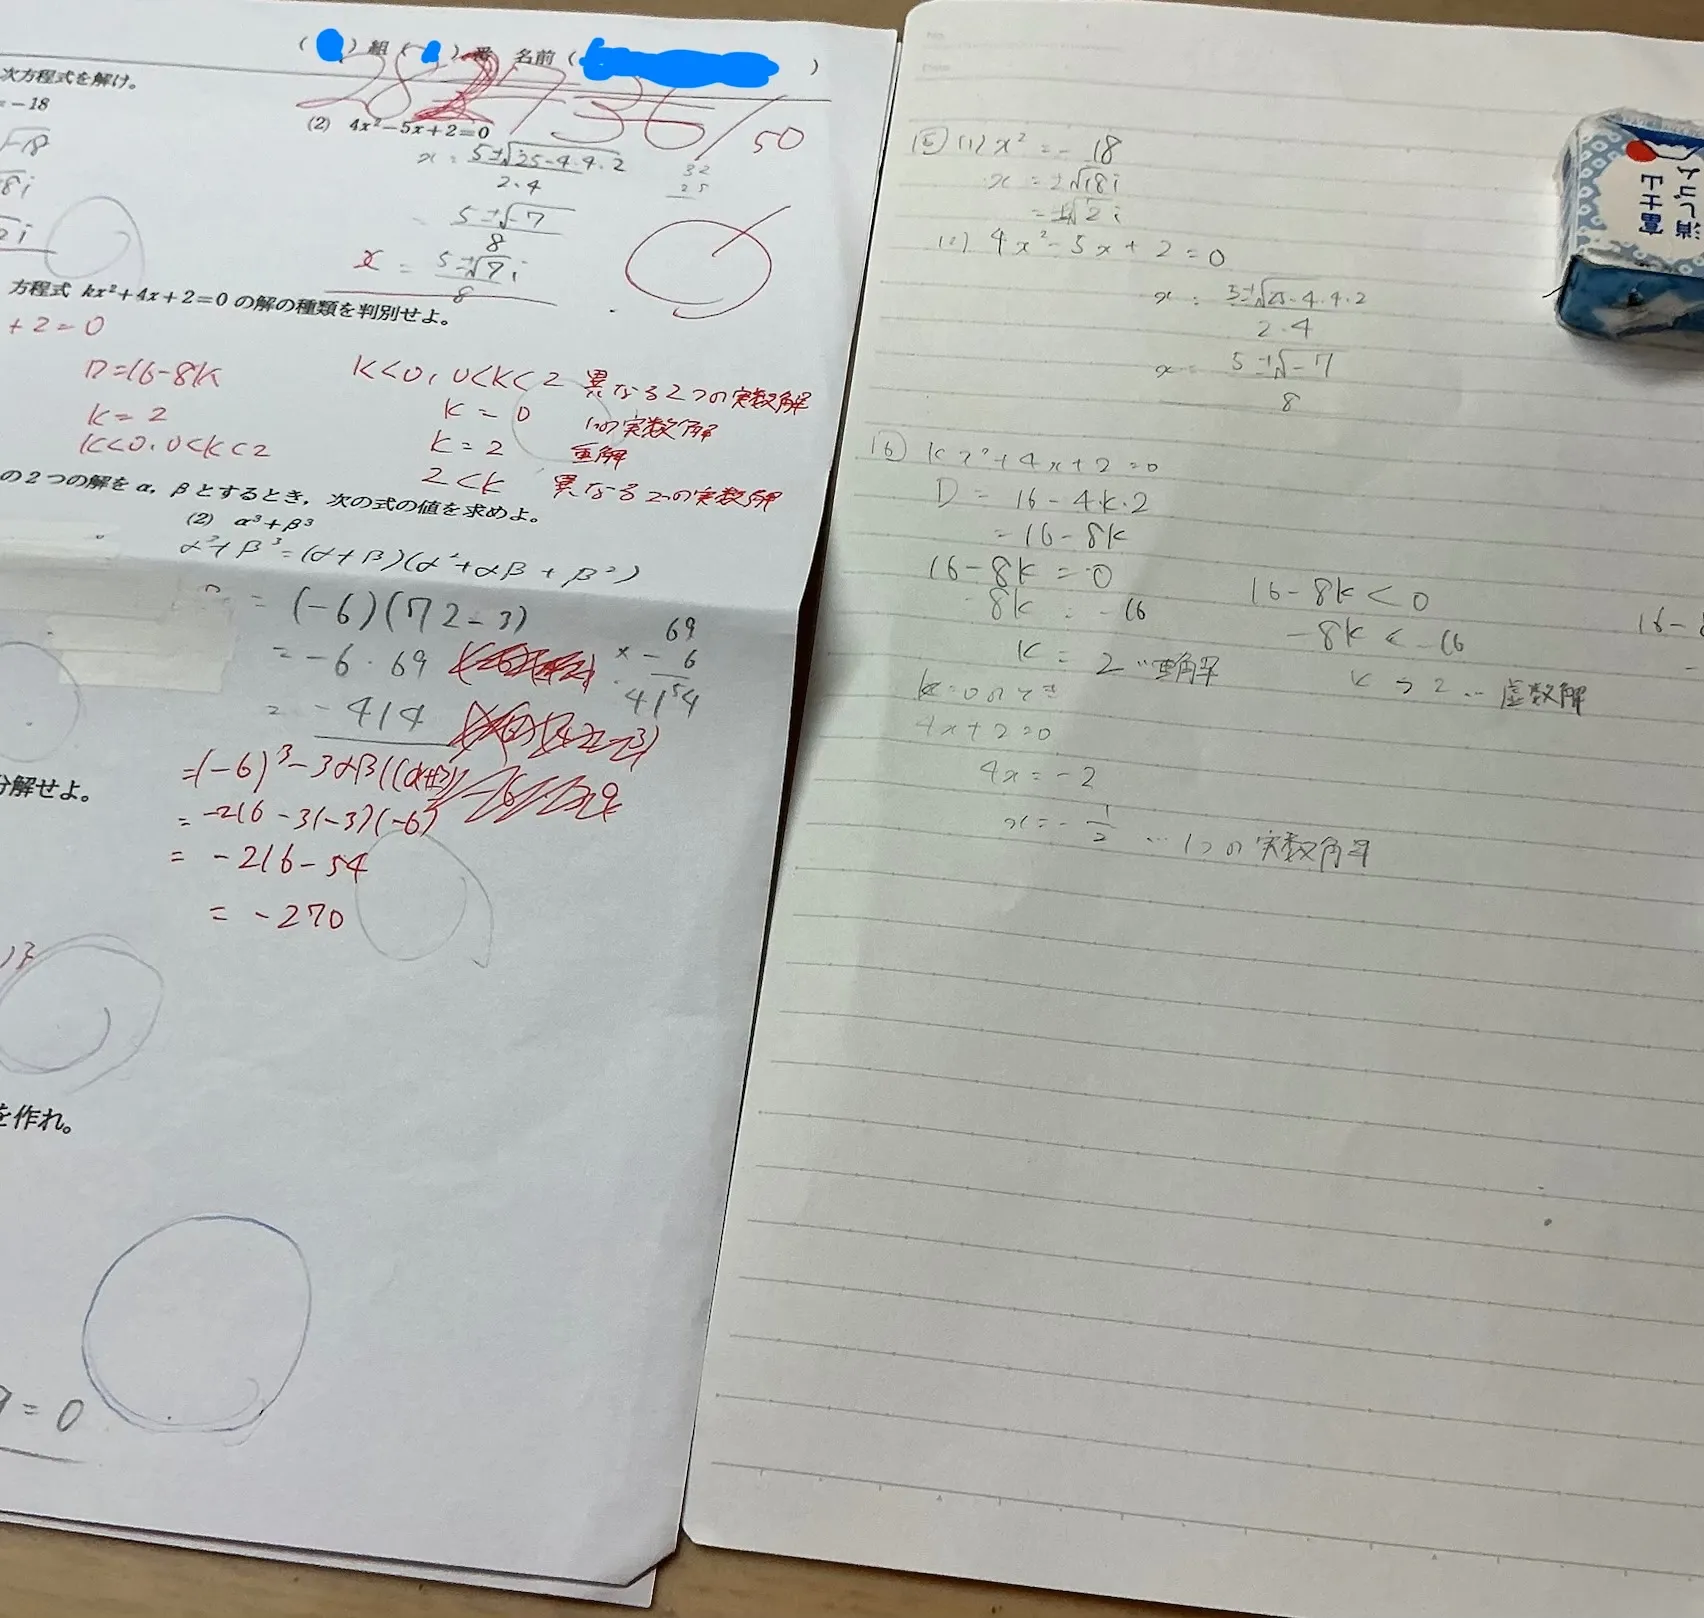 ( ) 組 ( ) 番 名前 ( )
28 27 36/50
次方程式を解け。
=-18
√-18
8i
2i
(2) 4x²-5x+2=0
x = 5±√25-4・4・2 / 2・4
32
25
5±√-7 / 8
x = 5±√7i / 8
方程式 kx²+4x+2=0 の解の種類を判別せよ。
+2=0
D=16-8k
k=2
k<0, 0<k<2
k<0, 0<k<2 異なる2つの実数解
k=0 1つの実数解
k=2 重解
2<k 異なる2つの実数解
の2つの解を α, β とするとき, 次の式の値を求めよ。
(2) α³+β³
α³+β³=(α+β)(α²+αβ+β²)
= (-6)(72-3)
= -6・69
= -414
69
× -6
414
=(-6)³-3αβ(α+β)
= -216-3(-3)(-6)
= -216-54
= -270
分解せよ。
を作れ。
= 0
15 (1) x² = -18
x = ±√18i
= ±√2i
(2) 4x²-5x+2=0
x = 5±√25-4・4・2 / 2・4
x = 5±√-7 / 8
16 kx²+4x+2=0
D = 16-4・k・2
= 16-8k
16-8k=0
-8k = -16
k = 2 … 重解
16-8k<0
-8k<-16
k>2 … 虚数解
16-8
k=0のとき
4x+2=0
4x=-2
x=-1/2 … 1つの実数解
富士山
消しゴム